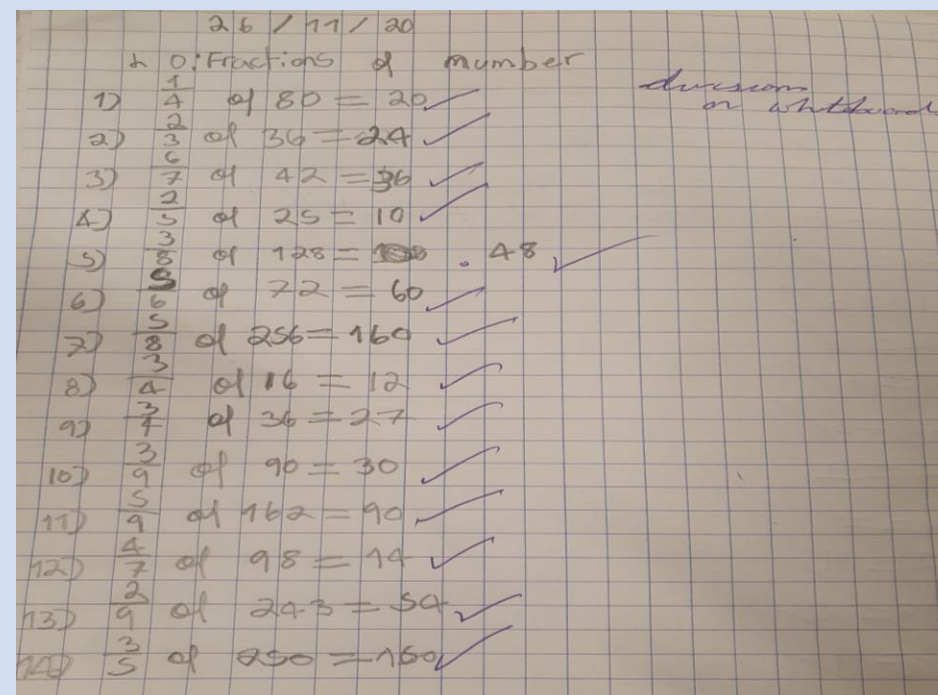 26/11/20
L O: Fractions of number
division
on whiteboard
1) 1/4 of 80 = 20
2) 2/3 of 36 = 24
3) 6/7 of 42 = 36
4) 2/5 of 25 = 10
5) 3/8 of 128 = . 48
6) 5/6 of 72 = 60
7) 5/8 of 256 = 160
8) 3/4 of 16 = 12
9) 3/4 of 36 = 27
10) 3/9 of 90 = 30
11) 5/9 of 162 = 90
12) 4/7 of 98 = 14
13) 2/9 of 243 = 54
14) 3/5 of 250 = 150